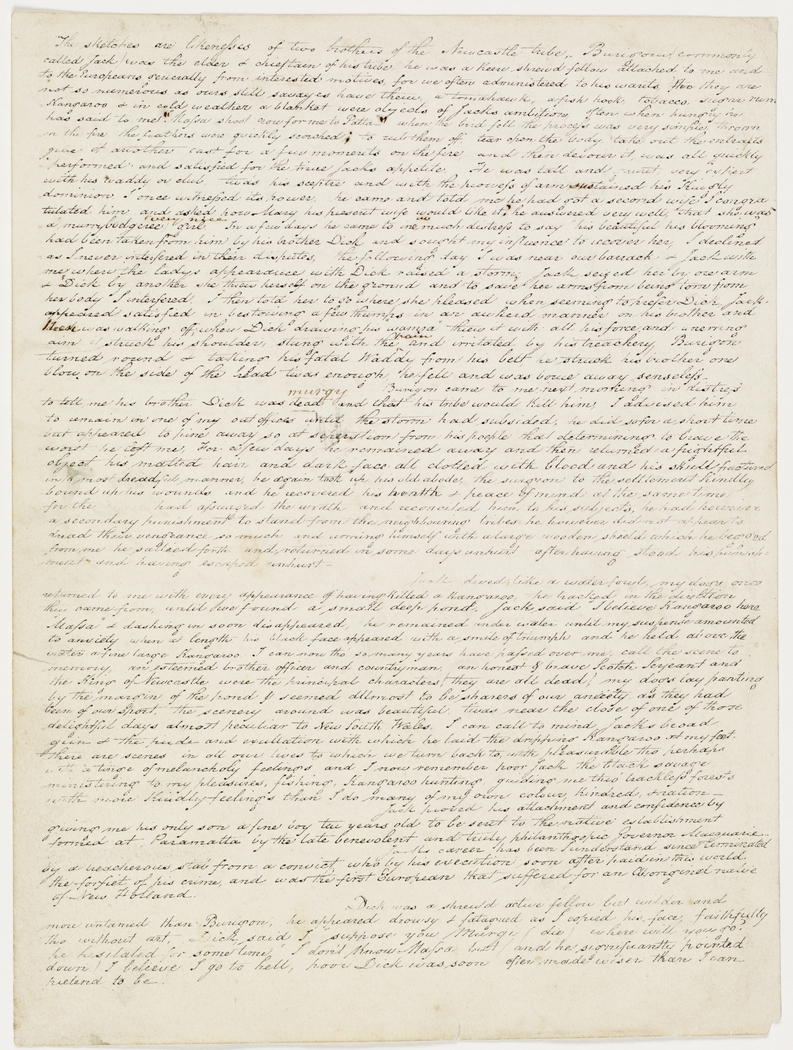 The sketches are likenesses of two brothers of the Newcastle tribe, Burigon (commonly
called Jack) was the elder & chieftain of his tribe, he was a keen, shrewd fellow attached to me and
to the Europeans generally from interested motives, for we often administered to his wants, tho they are
not so numerous as ours still savages have them, a tomahawk, a fish hook tobacco, sugar rum
Kangaroo & in cold weather a blanket were objects of Jacks ambition, often when hungry he
has said to me Massa shoot crow for me to Patta when the bird fell the process was very simple, thrown
on the fire the feathers were quickly scorched, to rub them of, tear open the body take out the entrails
give it another cast for a few moments on the fire and then devour it, was all quickly
performed and satisfied for the time Jacks appetite. He was tall and very expert
with his waddy or club, twas his sceptre and with the prowess of arm sustained his Kingly
dominion I once witnessed its power, he came and told me he had got a second wife I congra
tulated him and asked how Mary his present wife would like it, he answered very well, that she was
a murry budgeree girl very nice In a few days he came to me in much distress to say his beautiful his blooming
had been taken from him by his brother Dick and sought my influence to recover her, I declined
as I never interfered in their disputes, the following day I was near our barrack & Jack with
me where the ladys appearance with Dick raised a storm, Jack seized her by one arm
& Dick by another she threw herself on the ground and to save her arms from being torn from
her body I interfered. I then told her to go where she pleased when seeming to prefer Dick, Jack
appeared satisfied in bestowing a few thumps in an awkerd manner on his brother and
was walking of, when Dick drawing his threw it with all his force and unerring
aim it struck his shoulder, stung with the pain and irritated by his treachery, Burigon
turned round & taking his fatal Waddy from his belt he struck his brother one
blow, on the side of the head twas enough he fell and was bourn away senseless.
Burigon came to me next morning in distress
to tell me his brother Dick was dead murgy and that his tribe would kill him, I advised him
to remain in one of my out offices until the storm had subsided, he did so for a short time
but appeared to pine away so at seperation from his people that determining to brave the
worst he left me, For a few days he remained away and then returned a frightful
object, his matted hair and dark face all clotted with blood and his shield fractured
in a most dreadful manner, he again took up his old abode, the surgeon to the settlement kindly
bound up his wounds and he recovered his health & peace of mind at the same time
for the had assuaged the wrath and reconciled him to his subjects, he had however
a secondary punishment to stand from the neighbouring tribes he however did not appear to
dread their vengeance so much and arming himself with a large wooden shield which he begged
from me he sallied forth and returned in some days unhurt after having stood his punish-
ment and having escaped unhurt—
Jack dived like a water fowl, my dogs once
returned to me with every appearance of having killed a Kangaroo, he tracked in the direction
they came from, until we found a small deep pond. Jack said I believe Kangaroo here
Massa & dashing in soon disappeared, he remained under water until my suspense amounted
to anxiety when at length his black face appeared with a smile of triumph and he held above the
water a fine large Kangaroo. I can now tho so many years have passed over me, call the scene to
memory, an esteemed brother officer and countryman, an honest & brave Scotch Serjeant and
the King of Newcastle were the principal characters (they are all dead) my dogs lay panting
by the margin of the pond & seemed allmost to be sharers of our anxiety as they had
been of our sport the scenery around was beautiful twas near the close of one of those
delightful days almost peculiar to New South Wales, I can call to mind, Jacks broad
grin & the pride and exultation with which he laid the dripping Kangaroo at my feet.
there are scenes in all our lives to which we turn back to, with pleasurable tho perhaps
with a tinge of melancholy feelings and I now remember poor Jack the black savage
ministering to my pleasures, fishing, Kangaroo hunting, guiding me thro trackless forests
with more kindly feelings than I do many of my own colour, kindred, & nation—
Jack proved his attachment and confidence by
giving me his only son a fine boy ten years old to be sent to the native establishment
formed at Paramatta by the late benevolent and truly philanthropic Governor Macquarie.
his career has been I understand since terminated
by a treacherous stab from a convict, who by his execution soon after paid in this world,
the forfiet of his crime, and was the first European that suffered for an Aboriginal native
of New Holland.
Dick was a shrewd active fellow but wilder and
more untamed than Burigon, he appeared drowsy & fatagued as I copied his face, faithfully
tho without art, Dick, said I, suppose you Murgi (die) where will you go?
he hesitated for some time, I don't know Massa, but and he significantly pointed
down) I beleive I go to hell, poor Dick was soon after made wiser than I can
pretend to be.